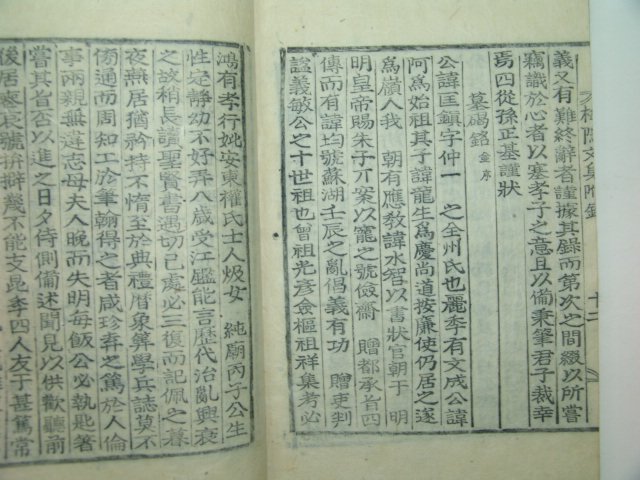 義又有難終辭者謹據其錄而第次之間綴以所嘗
竊識於心者以塞孝子之意且以備秉筆君子裁幸
焉四從孫正基謹狀
墓碣銘 並序
公諱匡鎭字仲一 之全州氏也麗季有文成公諱
阿爲始祖其子諱龍生爲慶尚道按廉使仍居之遂
爲嶺人我 朝有應敎諱水智以書狀官朝于 明
明皇帝賜朱子 案以寵之號儉齋 贈都承旨四
傳而有諱均號蘇湖壬辰之亂倡義有功 贈吏判
諡義敏公之十世祖也曾祖光彦僉樞祖祥集考必
鴻有孝行妣安東權氏士人 女 純廟丙子公生
性 靜幼不好弄八歲受江鑑能言歷代治亂興衰
之故稍長讀聖賢書遇切己處必三復而記佩之 
夜燕居猶矜持不惰至於典禮曆象筭學兵誌莫不
傍通而周知工於筆翰得之者咸珍弆之篤於人倫
事兩親無違志母夫人晚而失明每飯公必執匙箸
嘗其旨否以進之日夕侍側備述聞見以供歡聽前
後居喪哀號擗踊幾不能支昆季四人友于甚篤常